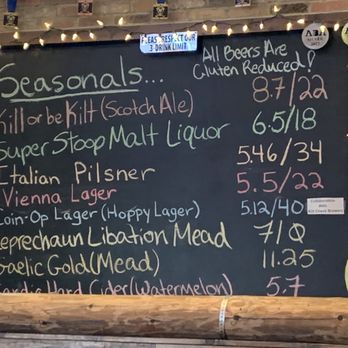 PLEASE RESPECT OUR
3 DRINK LIMIT
Seasonals...
All Beers Are
Gluten Reduced!
Kill or be Kilt (Scotch Ale) 8.7/22
Super Stoop Malt Liquor 6.5/18
Italian Pilsner 5.46/34
Vienna Lager 5.5/22
Coin-Op Lager (Hoppy Lager) 5.12/40
Leprechaun Libation Mead 7/0
Gaelic Gold (Mead) 11.25
Hard Cider (Watermelon) 5.7